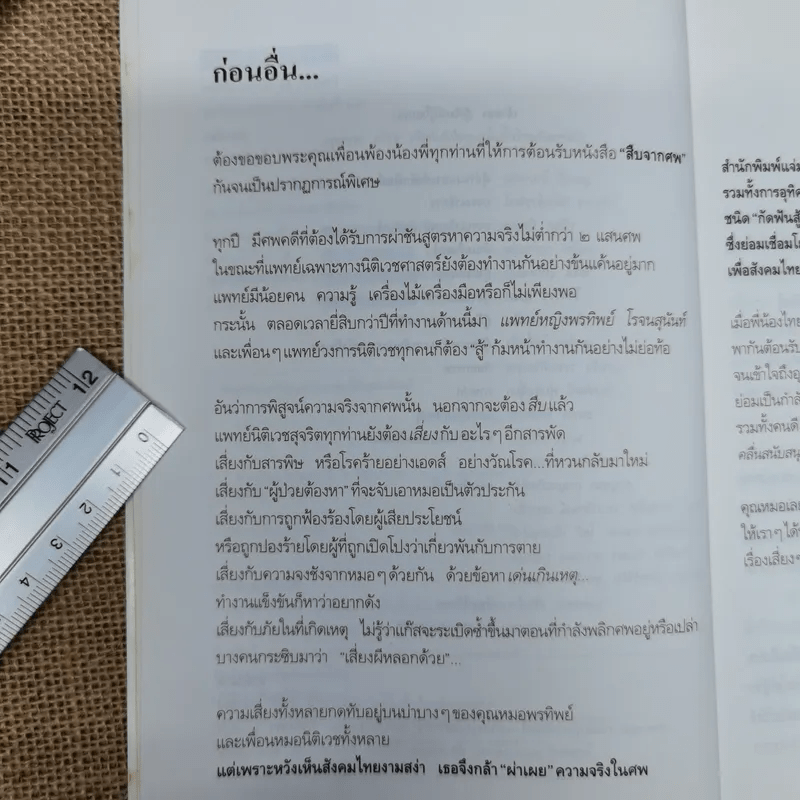 ก่อนอื่น...
ต้องขอขอบพระคุณเพื่อนพ้องน้องพี่ทุกท่านที่ให้การต้อนรับหนังสือ “สืบจากศพ”
กันจนเป็นปรากฏการณ์พิเศษ
ทุกปี มีศพคดีที่ต้องได้รับการผ่าชันสูตรหาความจริงไม่ต่ำกว่า ๒ แสนศพ
ในขณะที่แพทย์เฉพาะทางนิติเวชศาสตร์ยังต้องทำงานกันอย่างข้นแค้นอยู่มาก
แพทย์มีน้อยคน ความรู้ เครื่องไม้เครื่องมือหรือก็ไม่เพียงพอ
กระนั้น ตลอดเวลายี่สิบกว่าปีที่ทำงานด้านนี้มา แพทย์หญิงพรทิพย์ โรจนสุนันท์
และเพื่อนๆ แพทย์วงการนิติเวชทุกคนก็ต้อง “สู้” ก้มหน้าทำงานกันอย่างไม่ย่อท้อ
อันว่าการพิสูจน์ความจริงจากศพนั้น นอกจากจะต้อง สืบ แล้ว
แพทย์นิติเวชสุจริตทุกท่านยังต้อง เสี่ยง กับ อะไรๆ อีกสารพัด
เสี่ยงกับสารพิษ หรือโรคร้ายอย่างเอดส์ อย่างวัณโรค...ที่หวนกลับมาใหม่
เสี่ยงกับ “ผู้ป่วยต้องหา” ที่จะจับเอาหมอเป็นตัวประกัน
เสี่ยงกับการถูกฟ้องร้องโดยผู้เสียประโยชน์
หรือถูกปองร้ายโดยผู้ที่ถูกเปิดโปงว่าเกี่ยวพันกับการตาย
เสี่ยงกับความจงชังจากหมอๆ ด้วยกัน ด้วยข้อหา เด่นเกินเหตุ...
ทำงานแข็งขันก็หาว่าอยากดัง
เสี่ยงกับภัยในที่เกิดเหตุ ไม่รู้ว่าแก๊สจะระเบิดซ้ำขึ้นมาตอนที่กำลังพลิกศพอยู่หรือเปล่า
บางคนกระซิบมาว่า “เสี่ยงผีหลอกด้วย”...
ความเสี่ยงทั้งหลายกดทับอยู่บนบ่าบางๆ ของคุณหมอพรทิพย์
และเพื่อนหมอนิติเวชทั้งหลาย
แต่เพราะหวังเห็นสังคมไทยงามสง่า เธอจึงกล้า “ผ่าเผย” ความจริงในศพ
สำนักพิมพ์แจ่ม
รวมทั้งการอุทิศ
ชนิด “กัดฟันสู้
ซึ่งย่อมเชื่อมโ
เพื่อสังคมไทย
เมื่อพี่น้องไทย
พากันต้อนรับ
จนเข้าใจถึงอุ
ย่อมเป็นกำลั
รวมทั้งคนดี
คลื่นสนับสนุ
คุณหมอเลย
ให้เราๆ ได้
เรื่องเสี่ยงๆ
PROJECT
11 12
0 1 2 3 4